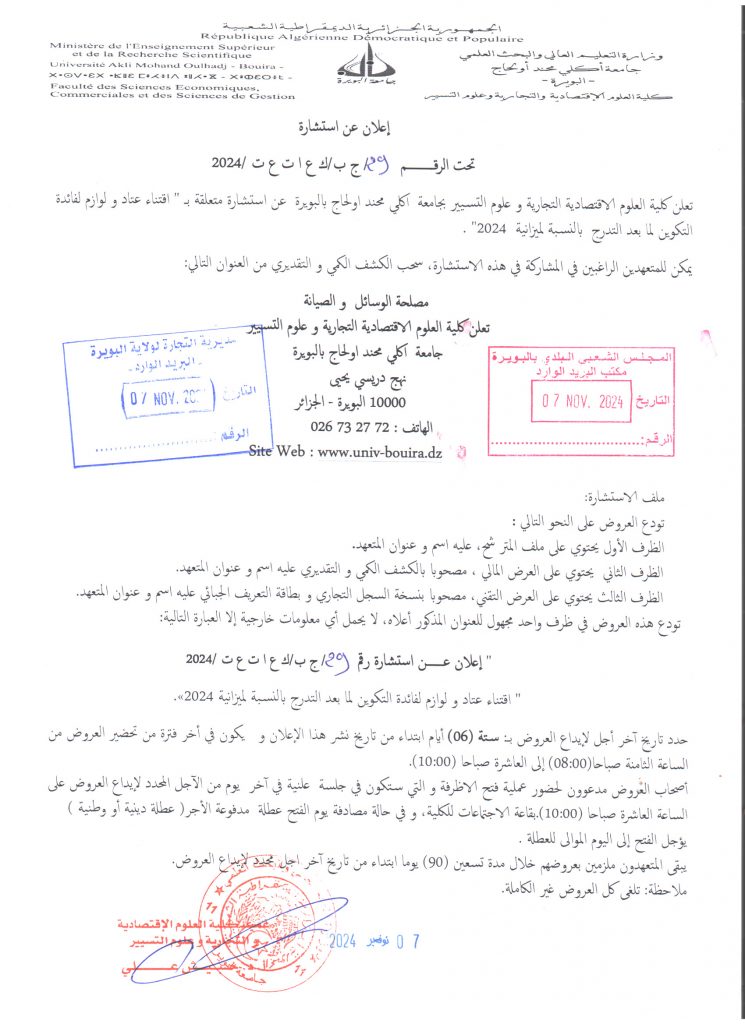 الجمهورية الجزائرية الديمقراطية الشعبية
République Algérienne Démocratique et Populaire
Ministère de l'Enseignement Supérieur
et de la Recherche Scientifique
Université Akli Mohand Oulhadj - Bouira -
Faculté des Sciences Economiques,
Commerciales et des Sciences de Gestion
جامعة البويرة
وزارة التعليم العالي والبحث العلمي
جامعة أكلي محند أولحاج
- البويرة -
كلية العلوم الاقتصادية والتجارية وعلوم التسيير
إعلان عن استشارة
تحت الرقم 29/ج ب/ك ع ا ت ع ت /2024
تعلن كلية العلوم الاقتصادية التجارية و علوم التسيير بجامعة اكلي محند اولحاج بالبويرة عن استشارة متعلقة بـ " اقتناء عتاد و لوازم لفائدة
التكوين لما بعد التدرج بالنسبة لميزانية 2024" .
يمكن للمتعهدين الراغبين في المشاركة في هذه الاستشارة، سحب الكشف الكمي و التقديري من العنوان التالي:
مصلحة الوسائل و الصيانة
تعلن كلية العلوم الاقتصادية التجارية و علوم التسيير
جامعة اكلي محند اولحاج بالبويرة
نهج دريسي يحيى
10000 البويرة - الجزائر
الهاتف : 72 27 73 026
Site Web : www.univ-bouira.dz
مديرية التجارة لولاية البويرة
البريد الوارد
التاريخ 07 NOV.
الرقم:
المجلس الشعبي البلدي بالبويرة
مكتب البريد الوارد
التاريخ 07 NOV. 2024
الرقم:
ملف الاستشارة:
تودع العروض على النحو التالي :
الظرف الأول يحتوي على ملف المترشح، عليه اسم و عنوان المتعهد.
الظرف الثاني يحتوي على العرض المالي ، مصحوبا بالكشف الكمي و التقديري عليه اسم و عنوان المتعهد.
الظرف الثالث يحتوي على العرض التقني، مصحوبا بنسخة السجل التجاري و بطاقة التعريف الجبائي عليه اسم و عنوان المتعهد.
تودع هذه العروض في ظرف واحد مجهول للعنوان المذكور أعلاه، لا يحمل أي معلومات خارجية إلا العبارة التالية:
" إعلان عــن استشارة رقم 29/ج ب/ك ع ا ت ع ت/ 2024
" اقتناء عتاد و لوازم لفائدة التكوين لما بعد التدرج بالنسبة لميزانية 2024».
حدد تاريخ آخر أجل لإيداع العروض بـ: ستة (06) أيام ابتداء من تاريخ نشر هذا الإعلان و يكون في أخر فترة من تحضير العروض من
الساعة الثامنة صباحا(08:00) إلى العاشرة صباحا (10:00).
أصحاب العروض مدعوون لحضور عملية فتح الاظرفة و التي ستكون في جلسة علنية في آخر يوم من الآجل المحدد لإيداع العروض على
الساعة العاشرة صباحا (10:00).بقاعة الاجتماعات للكلية، و في حالة مصادفة يوم الفتح عطلة مدفوعة الأجر( عطلة دينية أو وطنية )
يؤجل الفتح إلى اليوم الموالى للعطلة .
يبقى المتعهدون ملزمين بعروضهم خلال مدة تسعين (90) يوما ابتداء من تاريخ آخر اجل محدد لإيداع العروض.
ملاحظة: تلغى كل العروض غير الكاملة.
07 نوفمبر 2024
كلية العلوم الإقتصادية
والتجارية و علوم التسيير